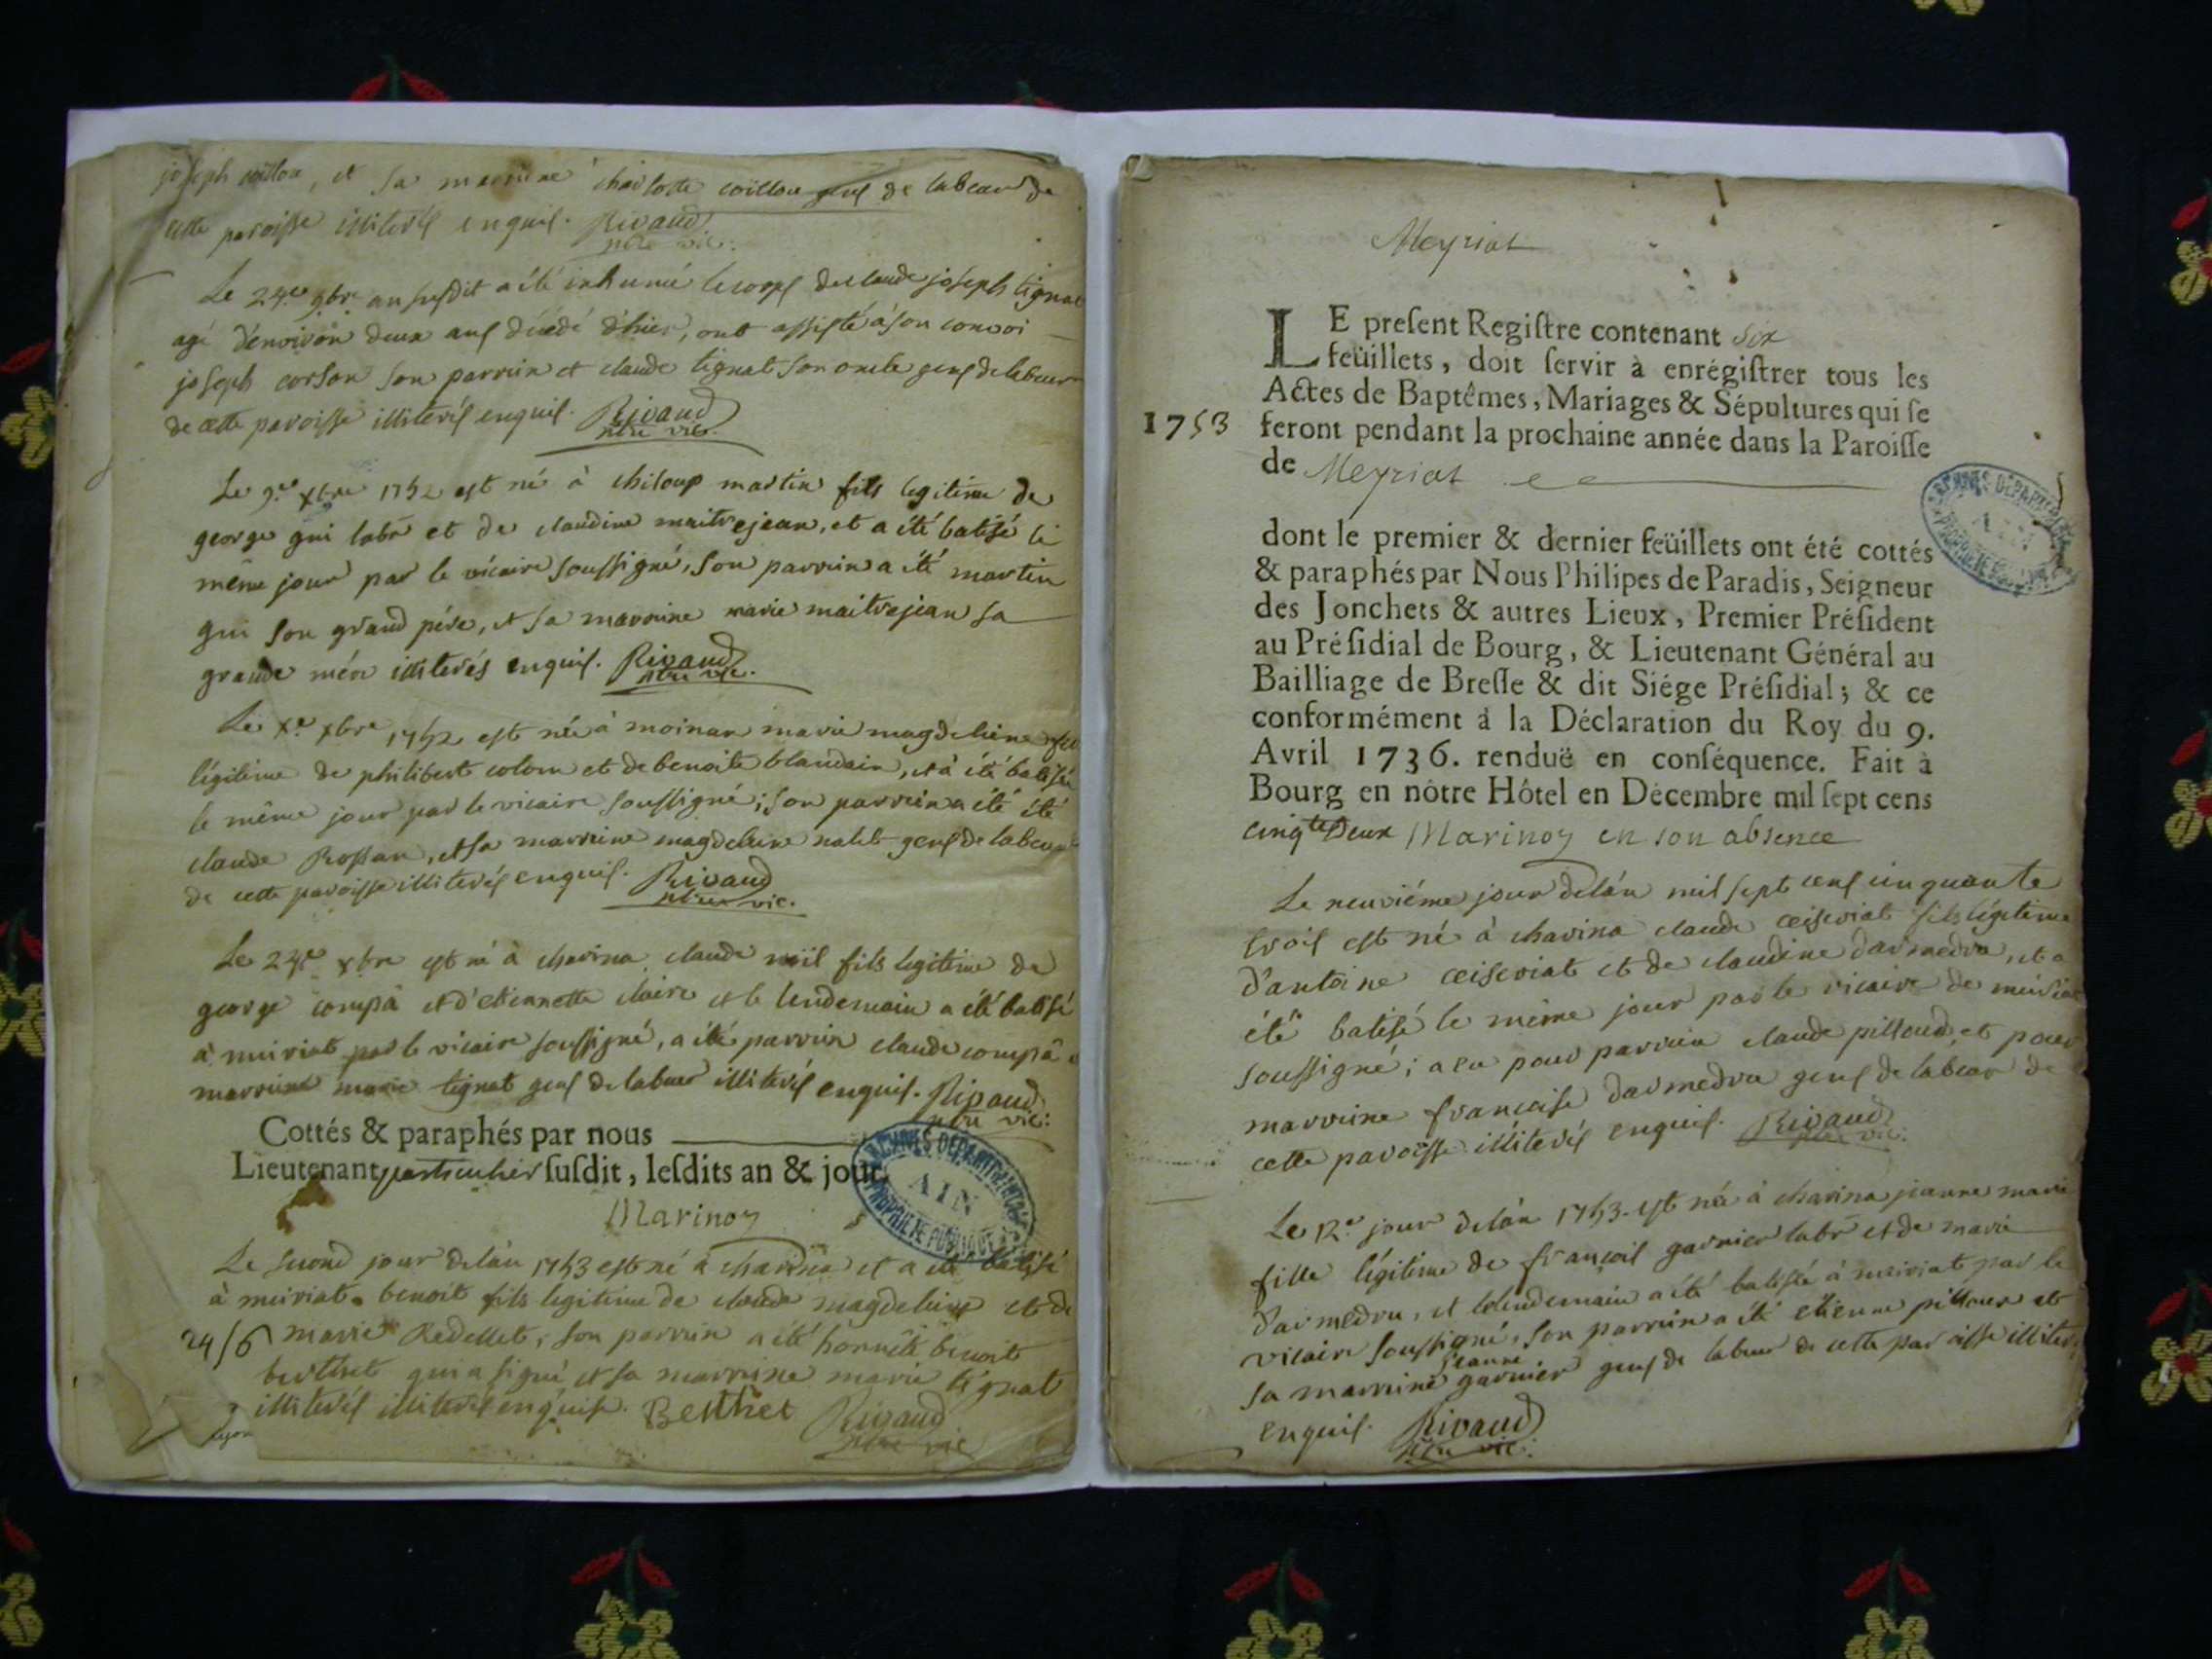 joseph coillou, et sa marraine charlotte coillou gens de labeur de
cette paroisse illiterés enquis. Rivaud
ptre vic.
Le 24e 9bre an susdit a été inhumé le corps de claude joseph tignat
agé d'environ deux ans décédé d'hier, ont assisté à son convoi
joseph corson son parrein et claude tignat son oncle gens de labeur
de cette paroisse illiterés enquis. Rivaud
ptre vic.
Le 9e xbre 1752 est né à chiloup martin fils legitime de
george gui labr et de claudine maitrejean, et a été batisé le
même jour par le vicaire soussigné, son parrein a été martin
gui son grand père, et sa marraine marie maitrejean sa
grande mère illiterés enquis. Rivaud
ptre vic.
Le xe xbre 1752 est née à moinan marie magdeleine
légitime de philibert colom et de benoite blandain, et a été batisée
le même jour par le vicaire soussigné; son parrein a été été
claude Rossan, et sa marraine magdeleine gens de labeur
de cette paroisse illiterés enquis. Rivaud
ptre vic.
Le 23e xbre est né à charina claude noil fils legitime de
george compâ et d'etiennette claire et le lendemain a été batisé
à meiriat par le vicaire soussigné, a été parrein claude compâ
marraine marie tignat gens de labeur illiterés enquis. Rivaud
ptre vic:
Cottés & paraphés par nous
Lieutenant particulier susdit, lesdits an & jour.
Marinoz
ARCHIVES DEPARTEMENTALES
AIN
PROPRIETE PUBLIQUE
Le second jour de l'an 1753 est né à charina et a été batisé
à meiriat benoit fils legitime de claude magdeleine et de
24/6 marie Redellet, son parrein a été honnête benoit
berthet qui a signé, et sa marraine marie tignat
illiterés illiterés enquis. Berthet Rivaud
ptre vic
Meyriat
LE present Registre contenant six
feüillets, doit servir à enrégistrer tous les
Actes de Baptêmes, Mariages & Sépultures qui se
1753 feront pendant la prochaine année dans la Paroisse
de Meyriat
ARCHIVES DEPARTEMENTALES
AIN
PROPRIETE PUBLIQUE
dont le premier & dernier feüillets ont été cottés
& paraphés par Nous Philipes de Paradis, Seigneur
des Jonchets & autres Lieux, Premier Président
au Présidial de Bourg, & Lieutenant Général au
Bailliage de Bresse & dit Siége Présidial; & ce
conformément à la Déclaration du Roy du 9.
Avril 1736. renduë en conséquence. Fait à
Bourg en nôtre Hôtel en Décembre mil sept cens
cinqte Deux Marinoz en son absence
Le neuviéme jour de l'an mil sept cens cinquante
trois est né à charina claude ceiseriat fils légitime
d'antoine ceiseriat et de claudine darmedru, et a
été batisé le même jour par le vicaire de meiriat
soussigné; a eu pour parrein claude pilloud, et pour
marraine francoise darmedru gens de labeur de
cette paroisse illiterés enquis. Rivaud
ptre vic:
Le 12e jour de l'an 1753 est née à charina jeanne marie
fille légitime de françois garnier labr et de marie
darmedru, et le lendemain a été batisée à meiriat par le
vicaire soussigné, son parrein a été etienne pilloud et
sa marraine jeanne garnier gens de labeur de cette paroisse illiter:
enquis. Rivaud
ptre vic: